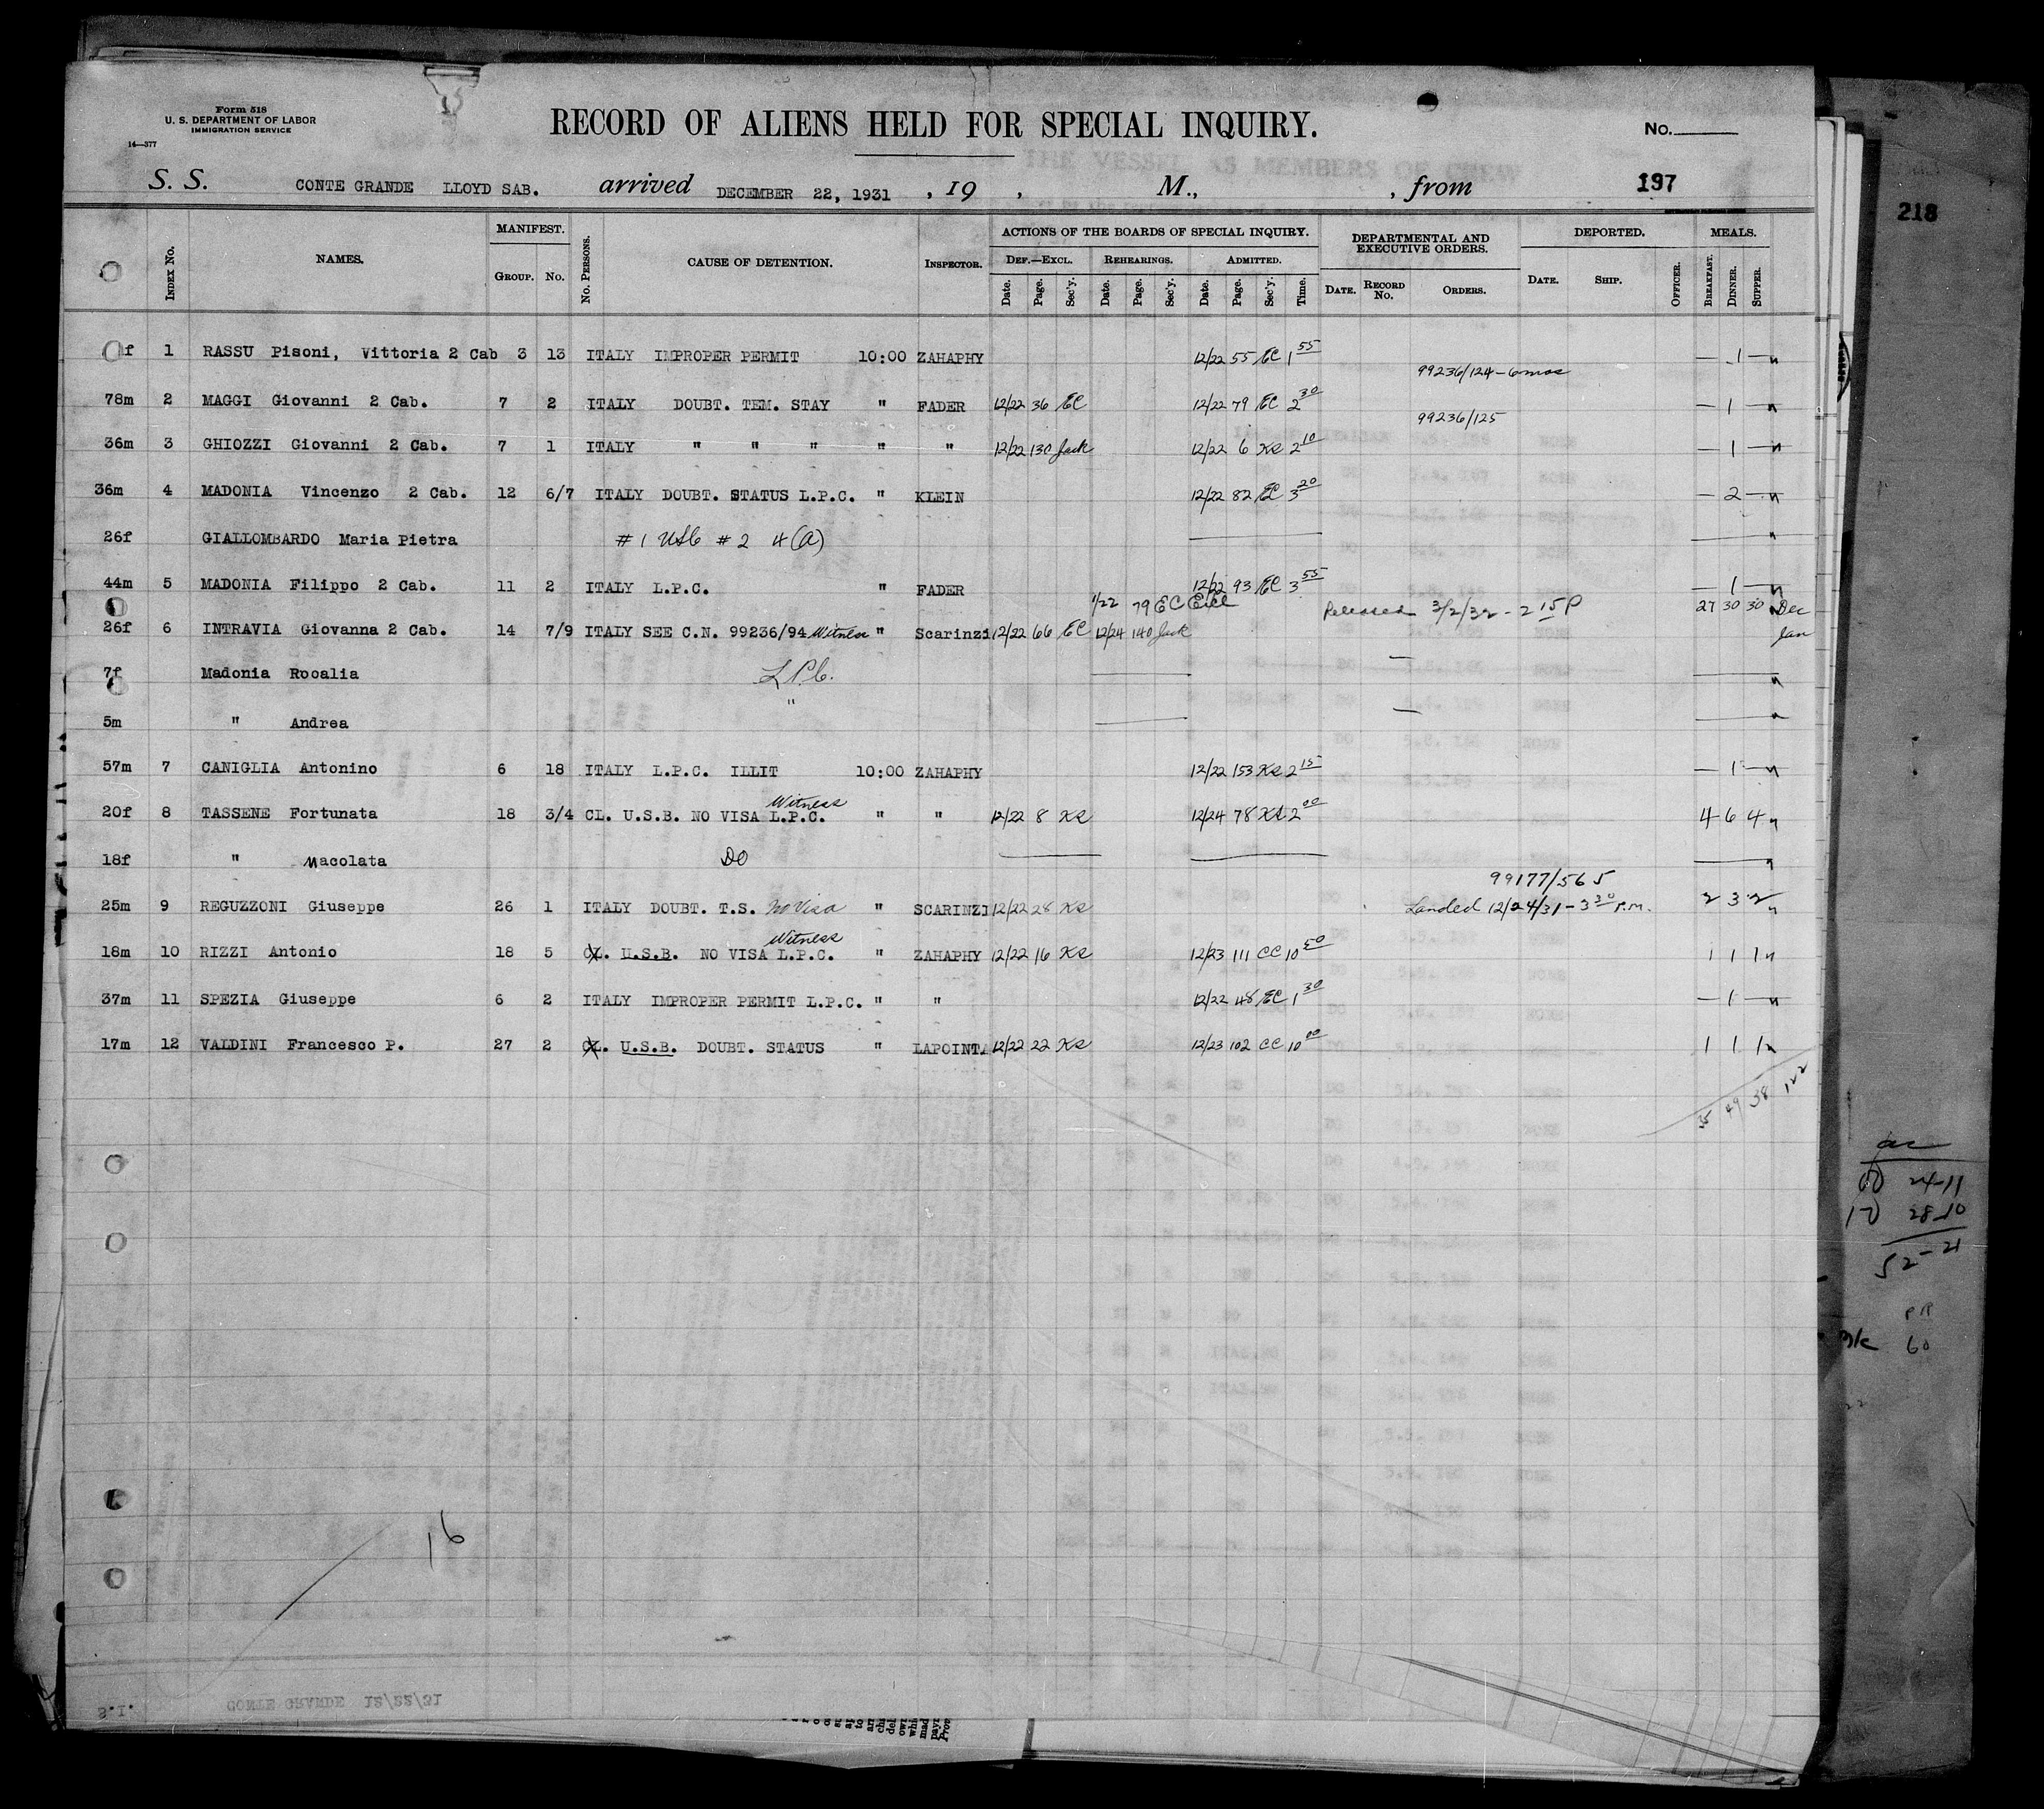 Form 518
U. S. DEPARTMENT OF LABOR
IMMIGRATION SERVICE
14—377
RECORD OF ALIENS HELD FOR SPECIAL INQUIRY.
No.
S. S. CONTE GRANDE LLOYD SAB. arrived DECEMBER 22, 1931 , 19 , M., , from 197
218
INDEX No. NAMES. MANIFEST. GROUP. No. No. PERSONS. CAUSE OF DETENTION. INSPECTOR. ACTIONS OF THE BOARDS OF SPECIAL INQUIRY. DEPARTMENTAL AND EXECUTIVE ORDERS. DEPORTED. MEALS.
DEF.—EXCL. REHEARINGS. ADMITTED.
Date. Page. Sec'y. Date. Page. Sec'y. Date. Page. Sec'y. Time. DATE. RECORD No. ORDERS. DATE. SHIP. OFFICER. BREAKFAST. DINNER. SUPPER.
f 1 RASSU Pisoni, Vittoria 2 Cab 3 13 ITALY IMPROPER PERMIT 10:00 ZAHAPHY 12/22 55 EC 1 55 — 1 —
99236/124-6mos
78m 2 MAGGI Giovanni 2 Cab. 7 2 ITALY DOUBT. TEM. STAY " FADER 12/22 36 EC 12/22 79 EC 2 30 — 1 —
99236/125
36m 3 GHIOZZI Giovanni 2 Cab. 7 1 ITALY " " " " " 12/22 130 Jack 12/22 6 KS 2 10 — 1 —
36m 4 MADONIA Vincenzo 2 Cab. 12 6/7 ITALY DOUBT. STATUS L.P.C. " KLEIN 12/22 82 EC 3 20 — 2 —
26f GIALLOMBARDO Maria Pietra # 1 USC # 2 4(a)
44m 5 MADONIA Filippo 2 Cab. 11 2 ITALY L.P.C. " FADER 12/22 93 EC 3 55 — 1 —
1/22 79 EC Excl Released 3/2/32 - 2 15 P 27 30 30 Dec
26f 6 INTRAVIA Giovanna 2 Cab. 14 7/9 ITALY SEE C.N. 99236/94 Witness " Scarinzi 12/22 66 EC 12/24 140 Jack Jan
7f Madonia Rocalia LPC.
5m " Andrea "
57m 7 CANIGLIA Antonino 6 18 ITALY L.P.C. ILLIT 10:00 ZAHAPHY 12/22 153 KS 2 15 — 1 —
Witness
20f 8 TASSENE Fortunata 18 3/4 CL. U.S.B. NO VISA L.P.C. " " 12/22 8 KS 12/24 78 KS 2 00 4 6 4
18f " Macolata DO
99177/565
25m 9 REGUZZONI Giuseppe 26 1 ITALY DOUBT. T.S. No Visa " SCARINZI 12/22 28 KS Landed 12/24/31 - 3 30 P.M. 2 3 2
Witness
18m 10 RIZZI Antonio 18 5 CL. U.S.B. NO VISA L.P.C. " ZAHAPHY 12/22 16 KS 12/23 111 CC 10 50 1 1 1
37m 11 SPEZIA Giuseppe 6 2 ITALY IMPROPER PERMIT L.P.C. " " 12/22 48 EC 1 30 — 1 —
17m 12 VALDINI Francesco P. 27 2 CL. U.S.B. DOUBT. STATUS " LAPOINTA 12/22 22 KS 12/23 102 CC 10 00 1 1 1
35 49 38 122
24-11
28-10
52-21
60
16
S.I. CONTE GRANDE 12/22/31